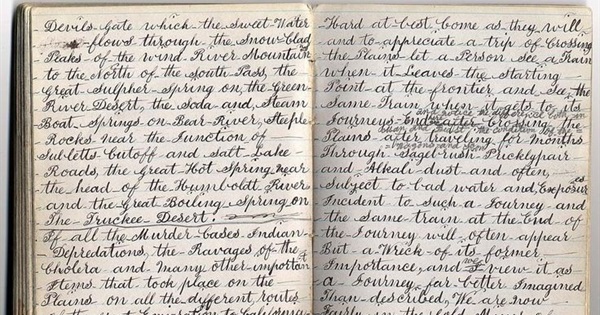 Devils-Gate which the Sweet-Water
flows through the Snow-Clad
Peaks of the Wind River Mountain
to the North of the South-Pass, the
Great Sulpher-Spring on the Green
River Desert, the Soda-and Steam
Boat-Springs on Bear-River, Steeple
Rocks near the Junction of
Subletts Cutoff and Salt-Lake-
Roads, the Great Hot Spring near
the head of the Humboldt River
and the Great Boiling-Spring on
The-Truckee-Desert.
If all the Murder-Cases-Indian-
Depredations, the Ravages of the
Cholera-and Many other important
Items that took place on the
Plains on all the different routes
Emegration to California
Hard at-best Come as they will
and to appreciate a trip of Crossing
the Plains let a Person See a Train
when it Leaves the Starting
Point at the frontier and See the
Same Train when it gets to its
and notice the difference
Journeys End after Crossing the
the condition
Plains after traveling for Months
wagons and
Through Sage brush Pricklypair
and Alkali-dust and often,
Subject to bad water and, Exposures
Incident to Such a Journey and
the Same train at the End of
the Journey will often appear
But-a-Wreck of its former
Importance, and view it as
a-Journey far better Imagined
Than-described, We are now
Fairly in the Gold Mines of